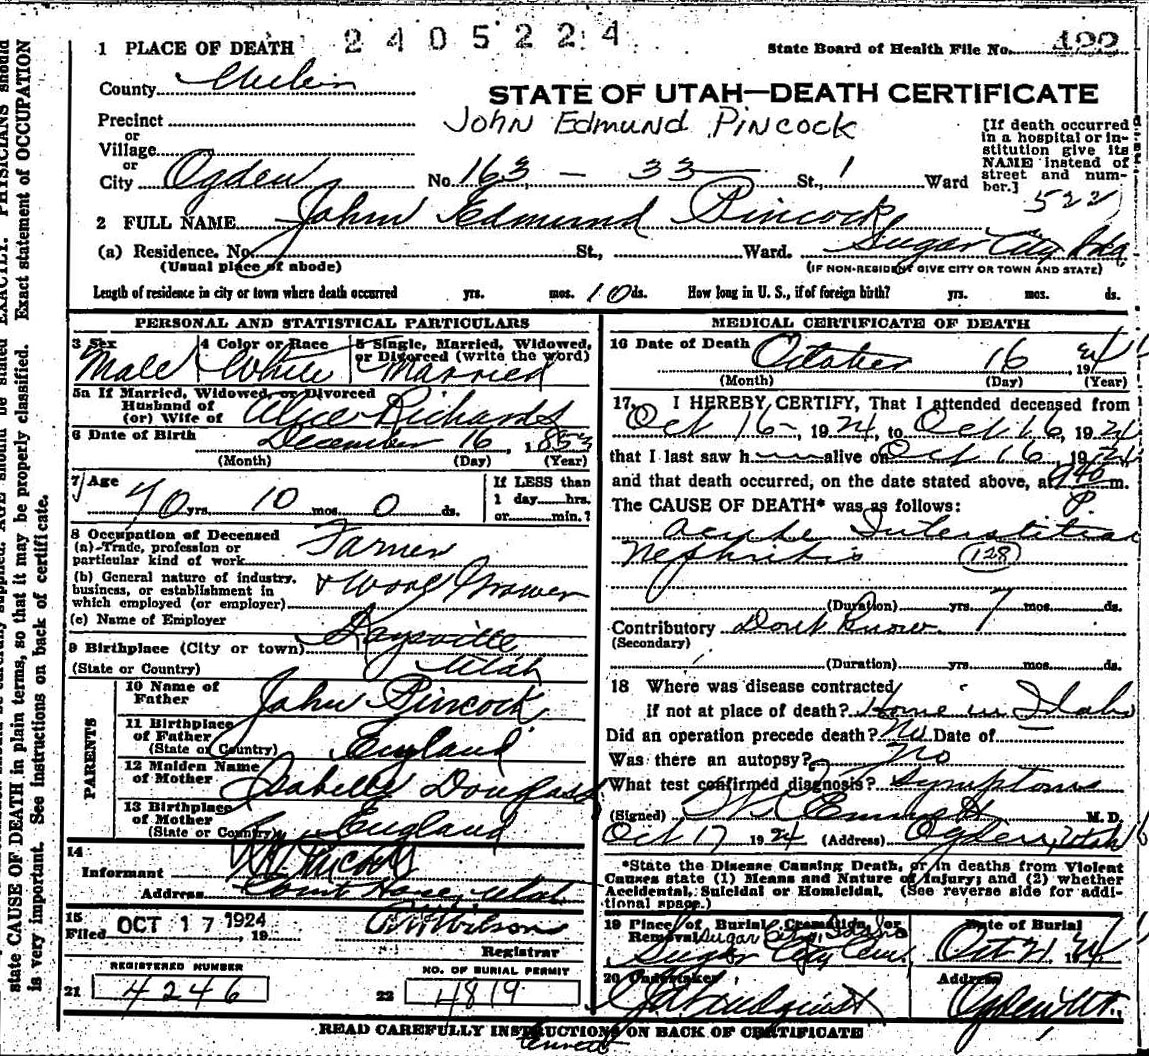 2405224
1 PLACE OF DEATH
State Board of Health File No. 422
County
STATE OF UTAH—DEATH CERTIFICATE
John Edmund Pincock
Precinct
or
Village
or
City Ogden No. 163 - 33 St., 1 Ward
[If death occurred
in a hospital or in-
stitution give its
NAME instead of
street and num-
ber.]
522
2 FULL NAME John Edmund Pincock
(a) Residence. No. St., Ward. Sugar City Ida
(Usual place of abode) (IF NON-RESIDENT GIVE CITY OR TOWN AND STATE)
Length of residence in city or town where death occurred yrs. mos. 10 ds. How long in U. S., if of foreign birth? yrs. mos. ds.
PERSONAL AND STATISTICAL PARTICULARS
3 Sex 4 Color or Race 5 Single, Married, Widowed,
or Divorced (write the word)
Male White Married
5a If Married, Widowed, or Divorced
Husband of
(or) Wife of Alice Richards
6 Date of Birth December 16, 1853
(Month) (Day) (Year)
7 Age
70 yrs. 10 mos. 0 ds.
If LESS than
1 day hrs.
or min.?
8 Occupation of Deceased
(a) Trade, profession or
particular kind of work Farmer
(b) General nature of industry,
business, or establishment in
which employed (or employer) & Wool Grower
(c) Name of Employer
9 Birthplace (City or town) Kaysville
(State or Country) Utah
PARENTS
10 Name of
Father John Pincock
11 Birthplace
of Father
(State or Country) England
12 Maiden Name
of Mother Isabelle Douglass
13 Birthplace
of Mother
(State or Country) England
14
Informant
Address Court House, Utah
15
Filed OCT 17 1924, 19
Registrar
REGISTERED NUMBER
21 4246
NO. OF BURIAL PERMIT
22 4819
MEDICAL CERTIFICATE OF DEATH
16 Date of Death October 16 1924
(Month) (Day) (Year)
17. I HEREBY CERTIFY, That I attended deceased from
Oct 16-, 1924, to Oct 16, 1924
that I last saw h alive on Oct 16, 1924
and that death occurred, on the date stated above, at 940 P m.
The CAUSE OF DEATH* was as follows:
Acute Interstitial
Nephritis 128
(Duration) yrs. 7 mos. ds.
Contributory Dont Know
(Secondary)
(Duration) yrs. mos. ds.
18 Where was disease contracted
if not at place of death? Home in Idaho
Did an operation precede death? No Date of
Was there an autopsy? No
What test confirmed diagnosis? Symptoms
(Signed) M. D.
Oct 17 1924 (Address) Ogden, Utah
*State the Disease Causing Death, or in deaths from Violent
Causes state (1) Means and Nature of Injury; and (2) whether
Accidental, Suicidal or Homicidal. (See reverse side for addi-
tional space.)
19 Place of Burial, Cremation, or
Removal Sugar City, Idaho
Sugar City Cem.
Date of Burial
Oct 21 1924
20 Undertaker
Address
Ogden Ut.
READ CAREFULLY INSTRUCTIONS ON BACK OF CERTIFICATE
state CAUSE OF DEATH in plain terms, so that it may be properly classified. Exact statement of OCCUPATION
is very important. See instructions on back of certificate.